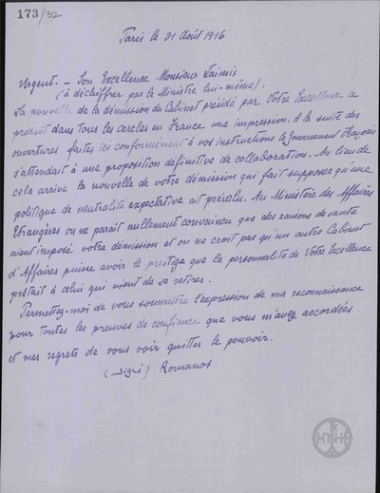 173/32
Paris le 31 Août 1916
Urgent. - Son Excellence Monsieur Zaimis
(à déchiffrer par le Ministre lui-même)
La nouvelle de la démission du Cabinet présidé par Votre Excellence a
produit dans tous les cercles en France une impression. A la suite des
ouvertures faites ici conformément à vos instructions le Gouvernement Français
s'attendait à une proposition définitive de collaboration. Au lieu de
cela arrive la nouvelle de votre démission qui fait supposer qu'une
politique de neutralité expectative ait prévalu. Au Ministère des Affaires
Etrangères on ne paraît nullement convaincu que des raisons de santé
aient imposé votre démission et on ne croit pas qu'un autre Cabinet
d'Affaires puisse avoir le prestige que la personnalité de Votre Excellence
prêtait à celui qui vient de se retirer.
Permettez-moi de vous soumettre l'expression de ma reconnaissance
pour toutes les preuves de confiance que vous m'avez accordées
et mes regrets de vous voir quitter le pouvoir.
(signé) Romanos